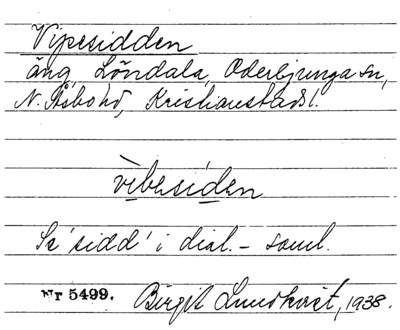 Vipesidden
äng, Löndala, Oderljunga sn,
N. Åsbo hd, Kristianstads l.
vibesiden
Se 'sidd' i dial.- saml.
Nr 5499. Birgit Lundkvist, 1938.